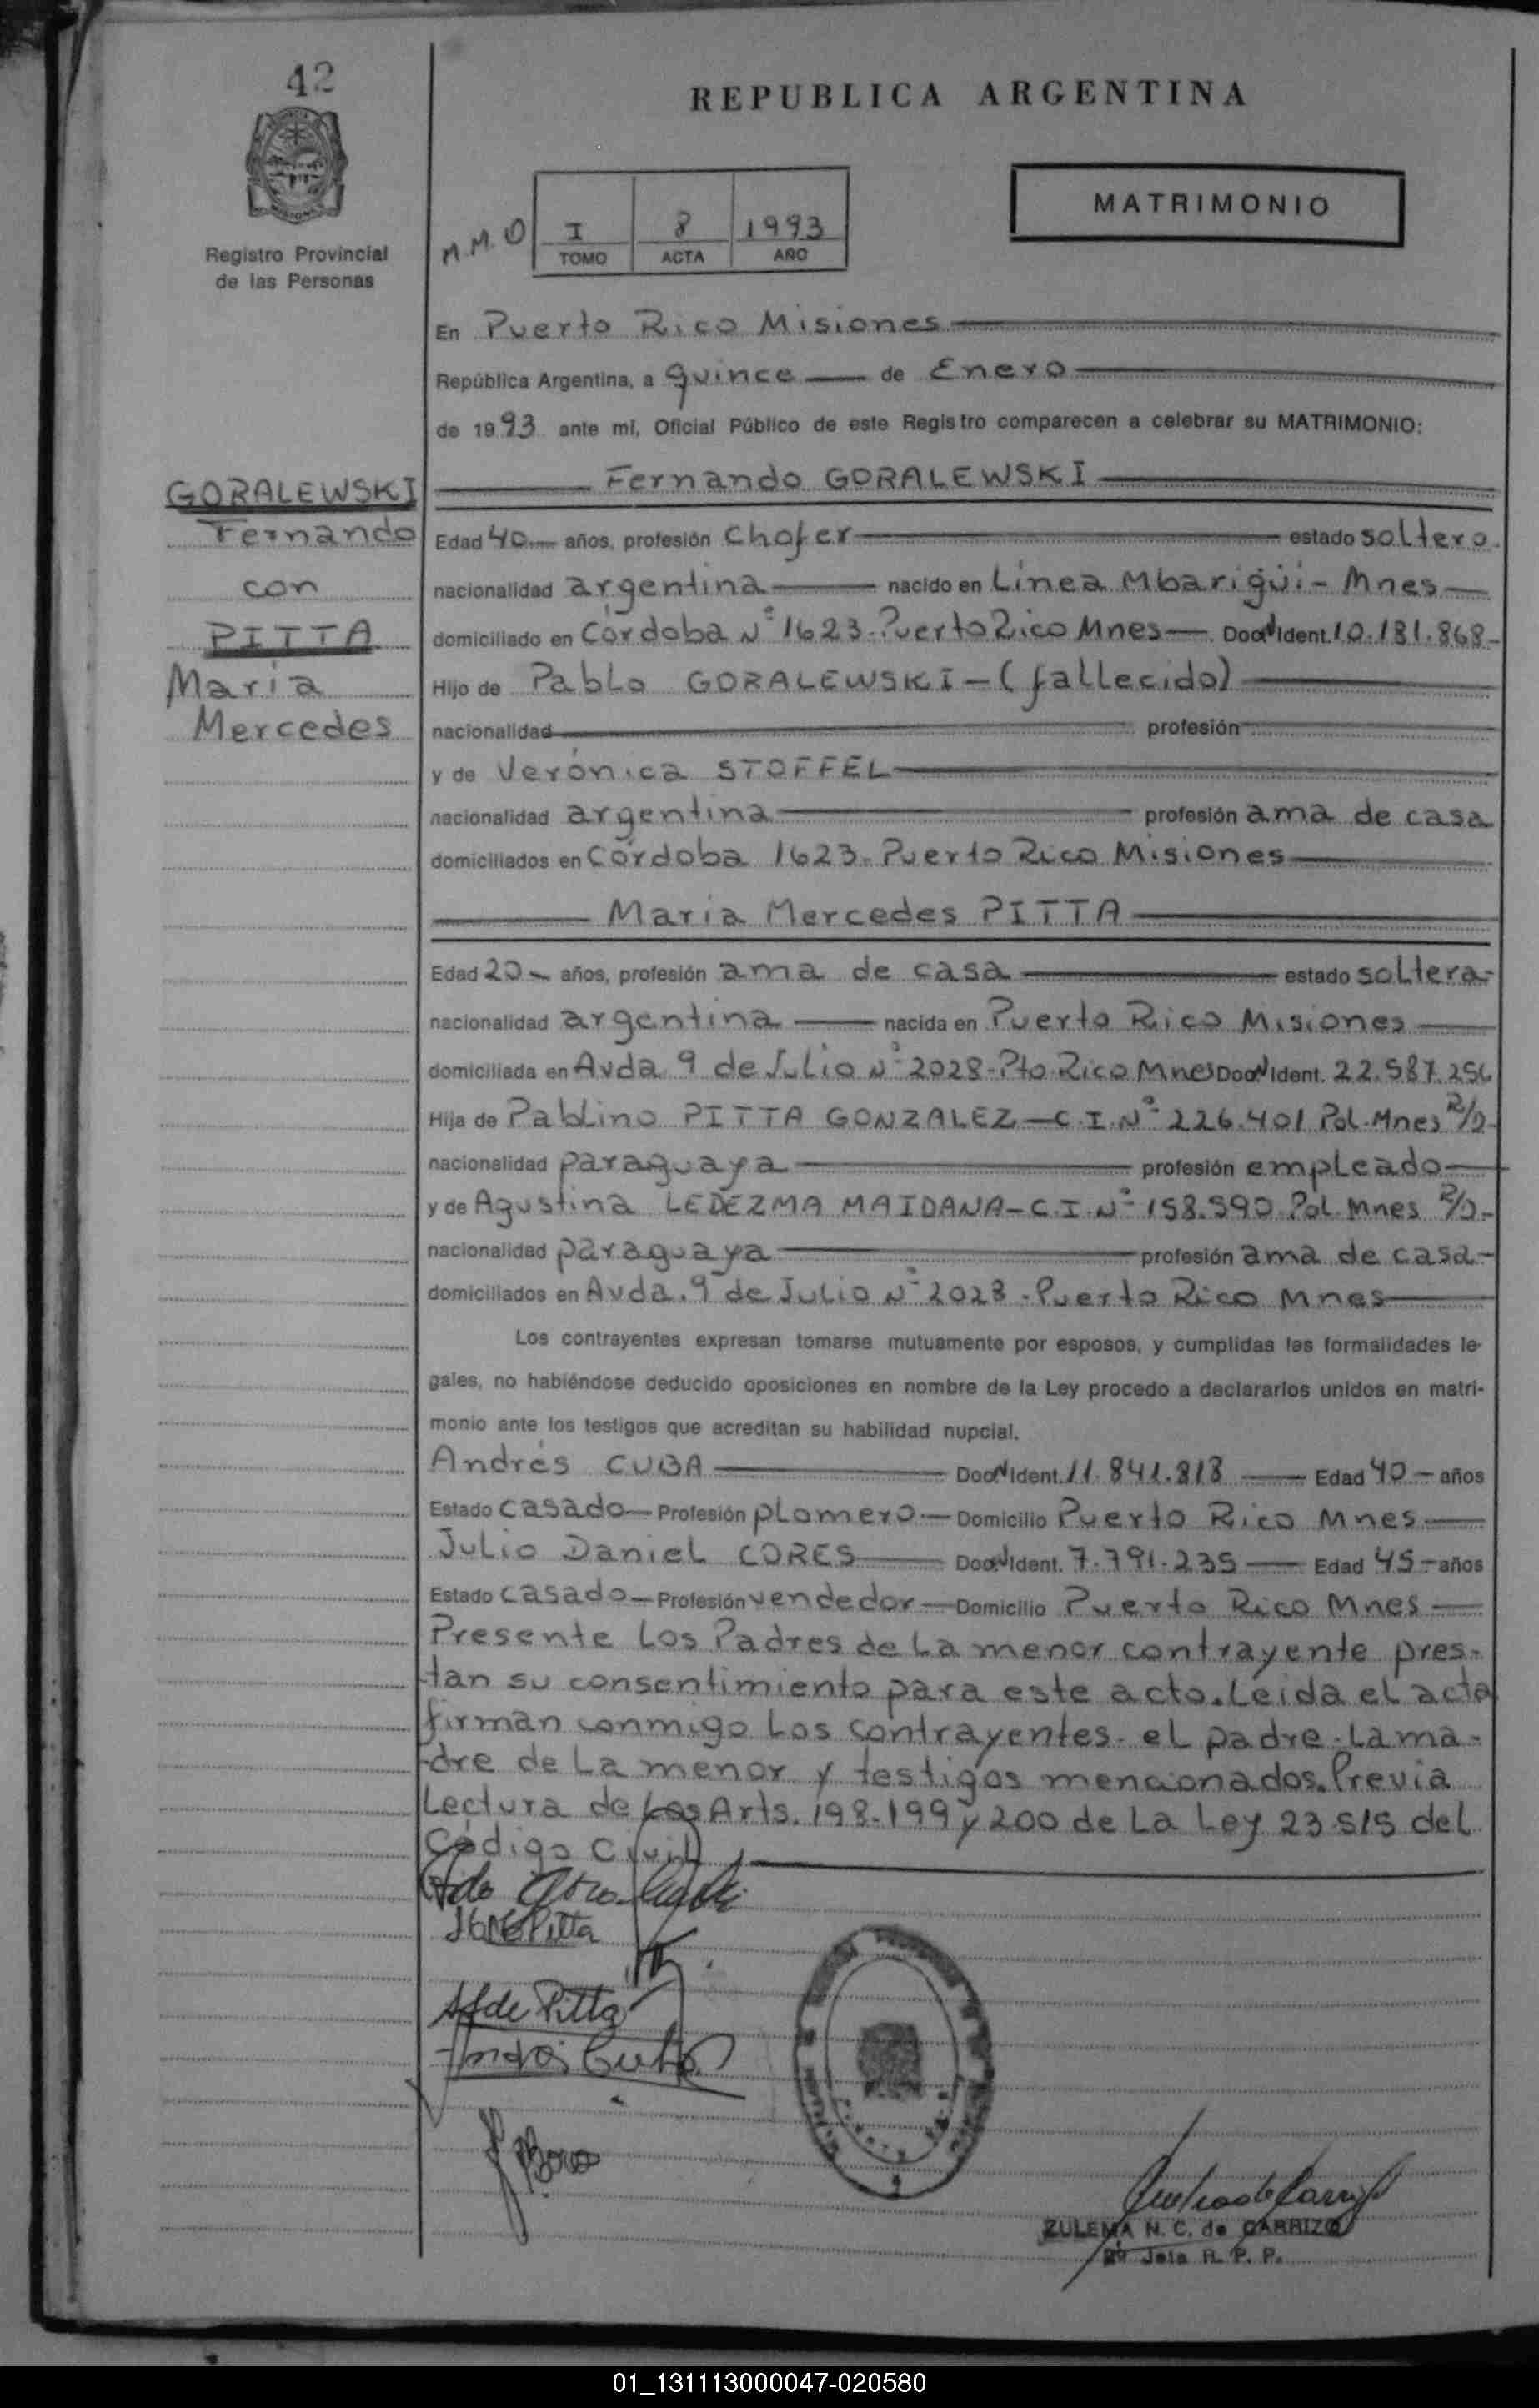 42
REPUBLICA ARGENTINA
MATRIMONIO
Registro Provincial
de las Personas
M.M.O I 8 1993
TOMO ACTA AÑO
En Puerto Rico Misiones
República Argentina, a quince de Enero
de 1993 ante mí, Oficial Público de este Registro comparecen a celebrar su MATRIMONIO:
GORALEWSKI
Fernando
con
PITTA
Maria
Mercedes
Fernando GORALEWSKI
Edad 40 años, profesión chofer estado soltero.
nacionalidad argentina nacido en Línea Mbarigüi - Mnes
domiciliado en Córdoba Nº 1623-Puerto Rico Mnes Doc N Ident. 10.181.868-
Hijo de Pablo GORALEWSKI - (fallecido)
nacionalidad profesión
y de Verónica STOFFEL
nacionalidad argentina profesión ama de casa
domiciliados en Córdoba 1623- Puerto Rico Misiones
María Mercedes PITTA
Edad 20 años, profesión ama de casa estado soltera-
nacionalidad argentina nacida en Puerto Rico Misiones
domiciliada en Avda 9 de Julio Nº 2028-Pto.Rico Mnes Doc N Ident. 22.587.256
Hija de Pablino PITTA GONZALEZ-C.I.Nº 226.401 Pol.Mnes R/D-
nacionalidad paraguaya profesión empleado
y de Agustina LEDEZMA MAIDANA-C.I.Nº 158.590 Pol. Mnes R/D-
nacionalidad paraguaya profesión ama de casa-
domiciliados en Avda. 9 de Julio Nº 2028 - Puerto Rico Mnes
Los contrayentes expresan tomarse mutuamente por esposos, y cumplidas las formalidades le-
gales, no habiéndose deducido oposiciones en nombre de la Ley procedo a declararlos unidos en matri-
monio ante los testigos que acreditan su habilidad nupcial.
Andrés CUBA Doc N Ident. 11.841.818 Edad 40 - años
Estado casado Profesión plomero Domicilio Puerto Rico Mnes
Julio Daniel CORES Doc N Ident. 7.791.235 Edad 45 - años
Estado casado Profesión vendedor Domicilio Puerto Rico Mnes
Presente los Padres de la menor contrayente pres-
tan su consentimiento para este acto. Leída el acta
firman conmigo los contrayentes. el padre. la ma-
dre de la menor y testigos mencionados. Previa
Lectura de los Arts. 198-199 y 200 de la Ley 23.515 del
Código Civil
Pitta
de Pitta
ZULEMA N. C. de CARRIZO
Jefa R. P. P.
01_131113000047-020580